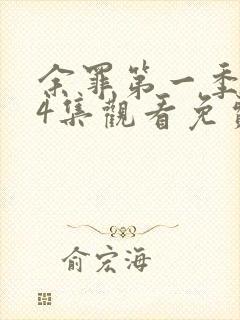 余罪第一季
4集觀看免
俞宏海